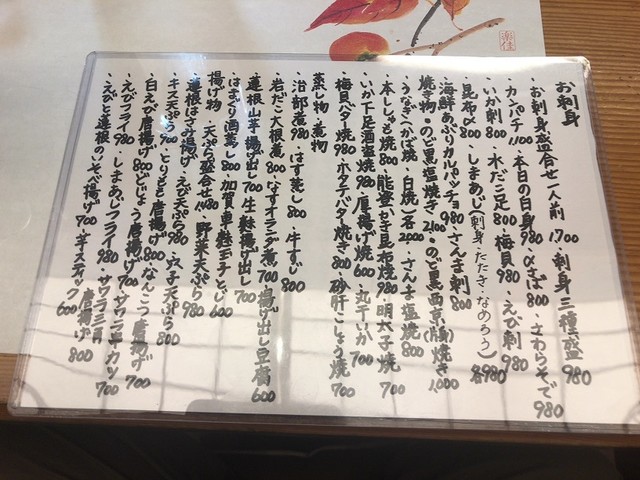 お刺身
・お刺身盛合せ一人前 1,700 ・刺身三種盛 980
・カンパチ 1,100 ・本日の白身 980 ・〆さば 800 ・さわらそで 980
・いか刺 800 ・水だこ足 800 ・梅貝 980 ・えび刺 980
・昆布〆 800 ・しまあじ(刺身・たたき・なめろう)各980
・海鮮あぶりカルパッチョ 980 ・さんま刺 800
焼き物 ・のど黒塩焼き 2,100 ・のど黒西京(豚)焼き 1,000
・うなぎ(かば焼・白焼)各2,000 ・さんま塩焼 800
・本ししゃも焼 800 ・能登かき昆布焼 980 ・明太子焼 700
・いか下足酒塩焼 980 ・厚揚げ焼 600 ・丸干いか 700
・梅貝バター焼 980 ・ホタテバター焼き 800 ・砂肝こしょう焼 700
蒸し物・煮物
・治部煮 980 ・はす蒸し 800 ・牛すじ 800
・岩だこ大根煮 800 ・なすオランダ煮 700 ・揚げ出し豆腐 600
・蓮根山芋揚げ出し 700 生麩揚げ出し 700
・はまぐり酒蒸し 800 加賀車麩玉子とじ 600
揚げ物 ・天ぷら盛合せ 1,480 ・野菜天ぷら 980
・蓮根はさみ揚げ ・えび天ぷら 980 ・穴子天ぷら 800
・キス天ぷら 900 ・とりもも唐揚げ 800 ・なんこつ唐揚げ 700
・白えび唐揚げ 800 どじょう唐揚げ 700 サワラ玉子カツ 700
・えびフライ 980 ・しまあじフライ 980 ・サワラ三角唐揚げ 800
・えびと蓮根のいそべ揚げ 700 ・ギスティック 600